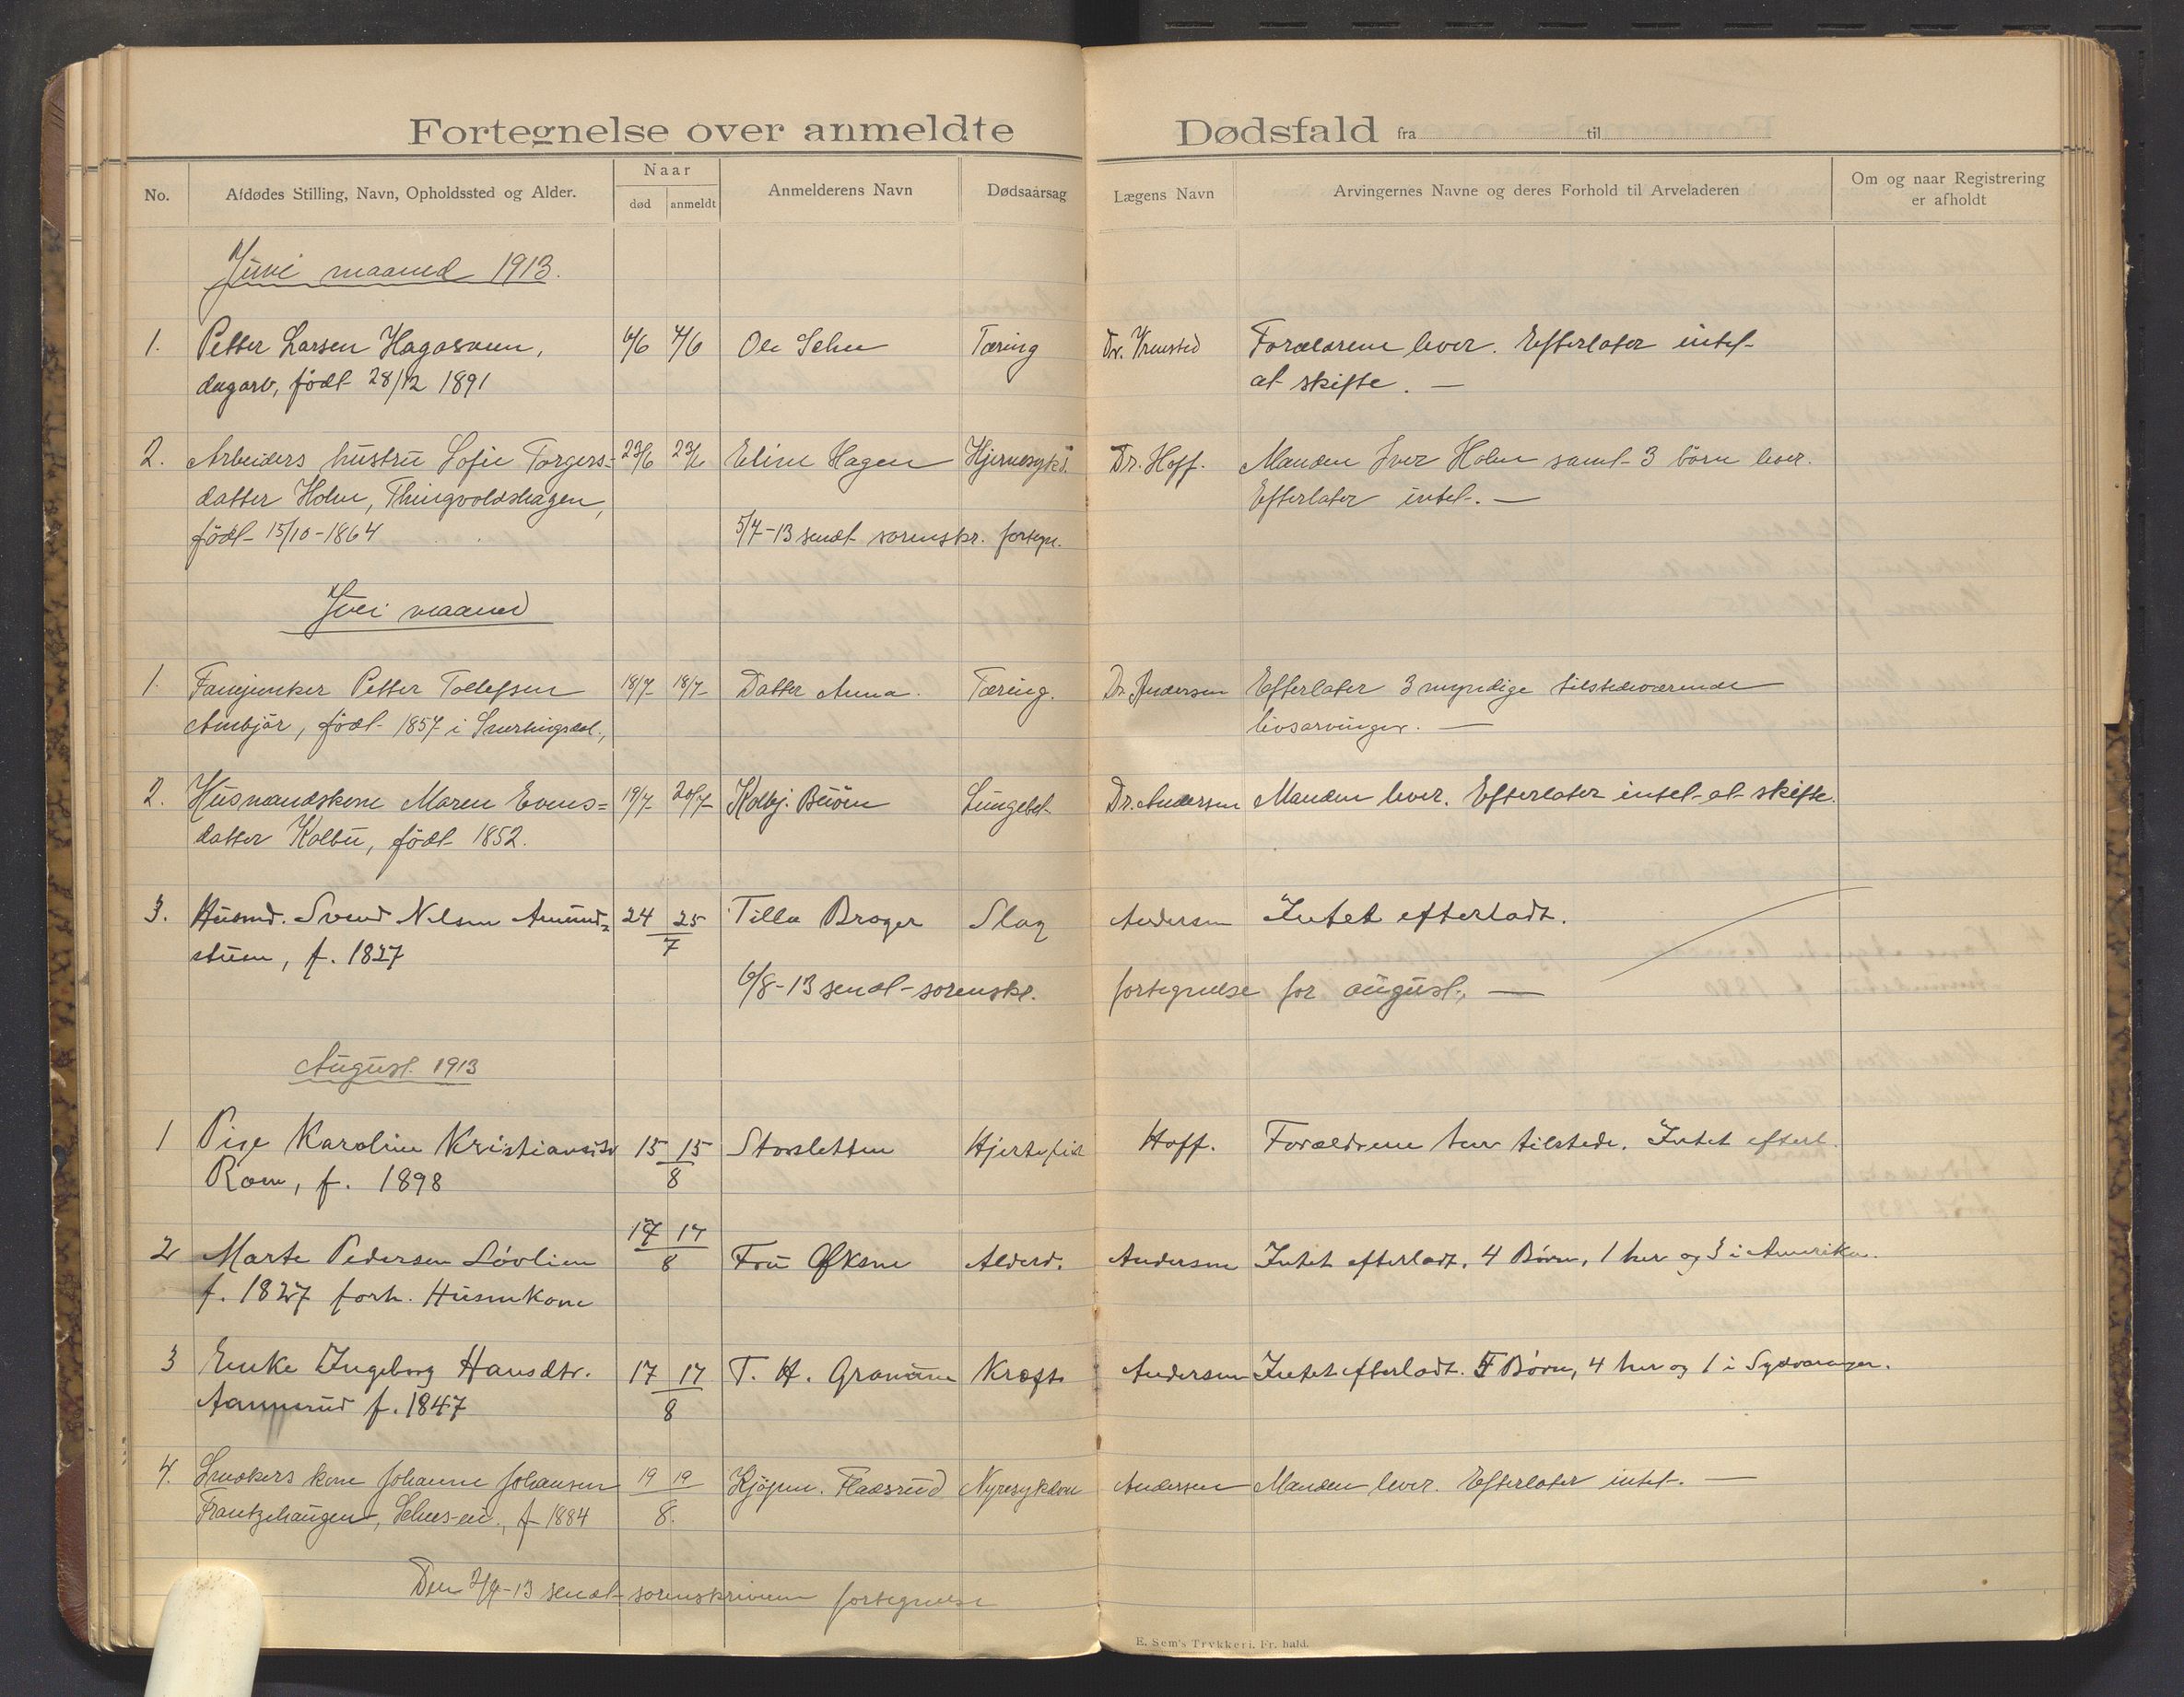 Fortegnelse over anmeldte Dødsfald fra til
No. Afdødes Stilling, Navn, Opholdssted og Alder. Naar død anmeldt Anmelderens Navn Dødsaarsag Lægens Navn Arvingernes Navne og deres Forhold til Arveladeren Om og naar Registrering er afholdt
Juni maaned 1913.
1. Petter Larsen Hagasveen, 6/6 7/6 Ole Selm Tæring Dr. Forældrene lever. Efterlater intet
dagarb, født 28/12 1891 at skifte. —
2. Arbeiders hustru Sofie Torgers= 23/6 23/6 Eline Hagen Hjernesykd. Dr. Hoff. Manden Iver Holm samt 3 børn lever.
datter Holm, Thingvoldshagen, Efterlater intet. —
født 15/10-1864 5/7-13 sendt sorenskr. fortegn.
Juli maaned
1. Fanejunker Petter Tollefsen 18/7 18/7 Datter Anna. Tæring. Dr. Andersen Efterlater 3 myndige tilstedeværende
født 1857 i Snertingdal., livsarvinger. —
2. Husmandskone Maren Evens= 19/7 20/7 Kolbj. Lungebet. Dr. Andersen Manden lever. Efterlater intet at skifte.
datter Kolbu, født 1852.
3. Husmd. Svend Nilsen Amund= 24 25/7 Tilla Brager Slag Andersen Intet efterladt.
stuen, f. 1827
6/8-13 sendt sorenskr. fortegnelse for august. —
August 1913
1 Pige Karoline Kristiansdtr 15 15/8 Storsletten Hjertefeil Hoff. Forældrene her tilstede. Intet efterl.
Rom, f. 1898
2 Marte Pedersen Løvlien 17 17/8 Fru Øksne Alderd. Andersen Intet efterladt. 4 Børn, 1 her og 3 i Amerika.
f. 1827 forh. Husmkone
3 Enke Ingeborg Hansdtr. 17 17/8 T. H. Kræft Andersen Intet efterladt. 5 Børn, 4 her og 1 i Sydvaranger.
f. 1847
4. Snekkers kone Johanne Johansen 19 19/8. Kjøpm. Fladsrud Nyresykdom Andersen Manden lever. Efterlater intet. —
Frantzehaugen, f 1884
Den 2/9-13 sendt sorenskriveren fortegnelse
E. Sem's Trykkeri. Fr. hald.